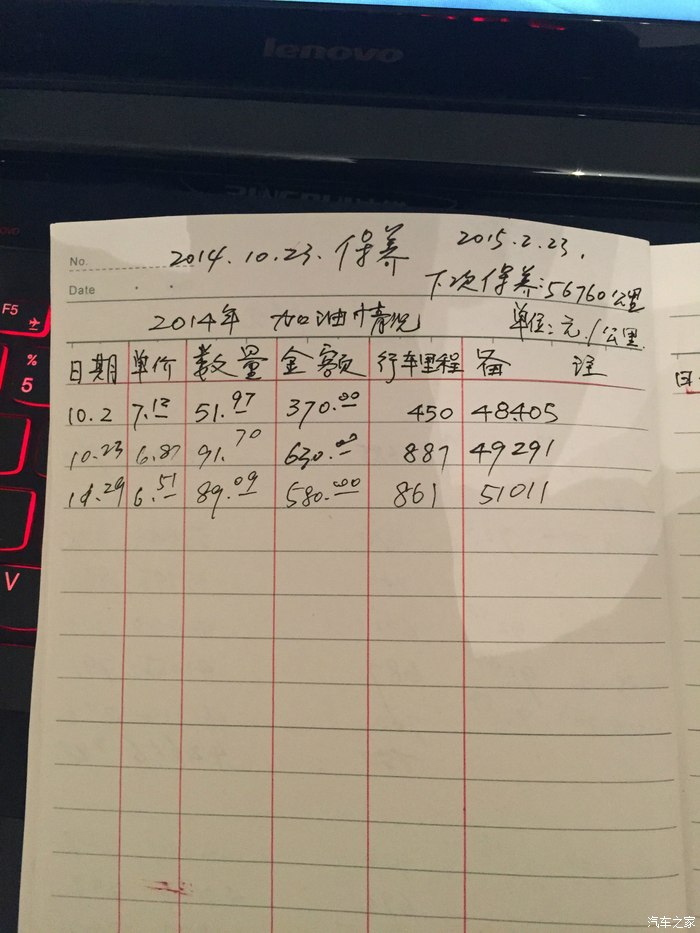 lenovo
F5
%
5
V
No.
2014.10.23.保养 2015.2.23.
Date
下次保养:56760公里
2014年 加油情况 单位:元/公里
日期 单价 数量 金额 行车里程 备 注
10.2 7.12 51.97 370.00 450 48405
10.23 6.87 91.70 630.00 887 49291
6.51 89.09 580.00 861 51011
汽车之家